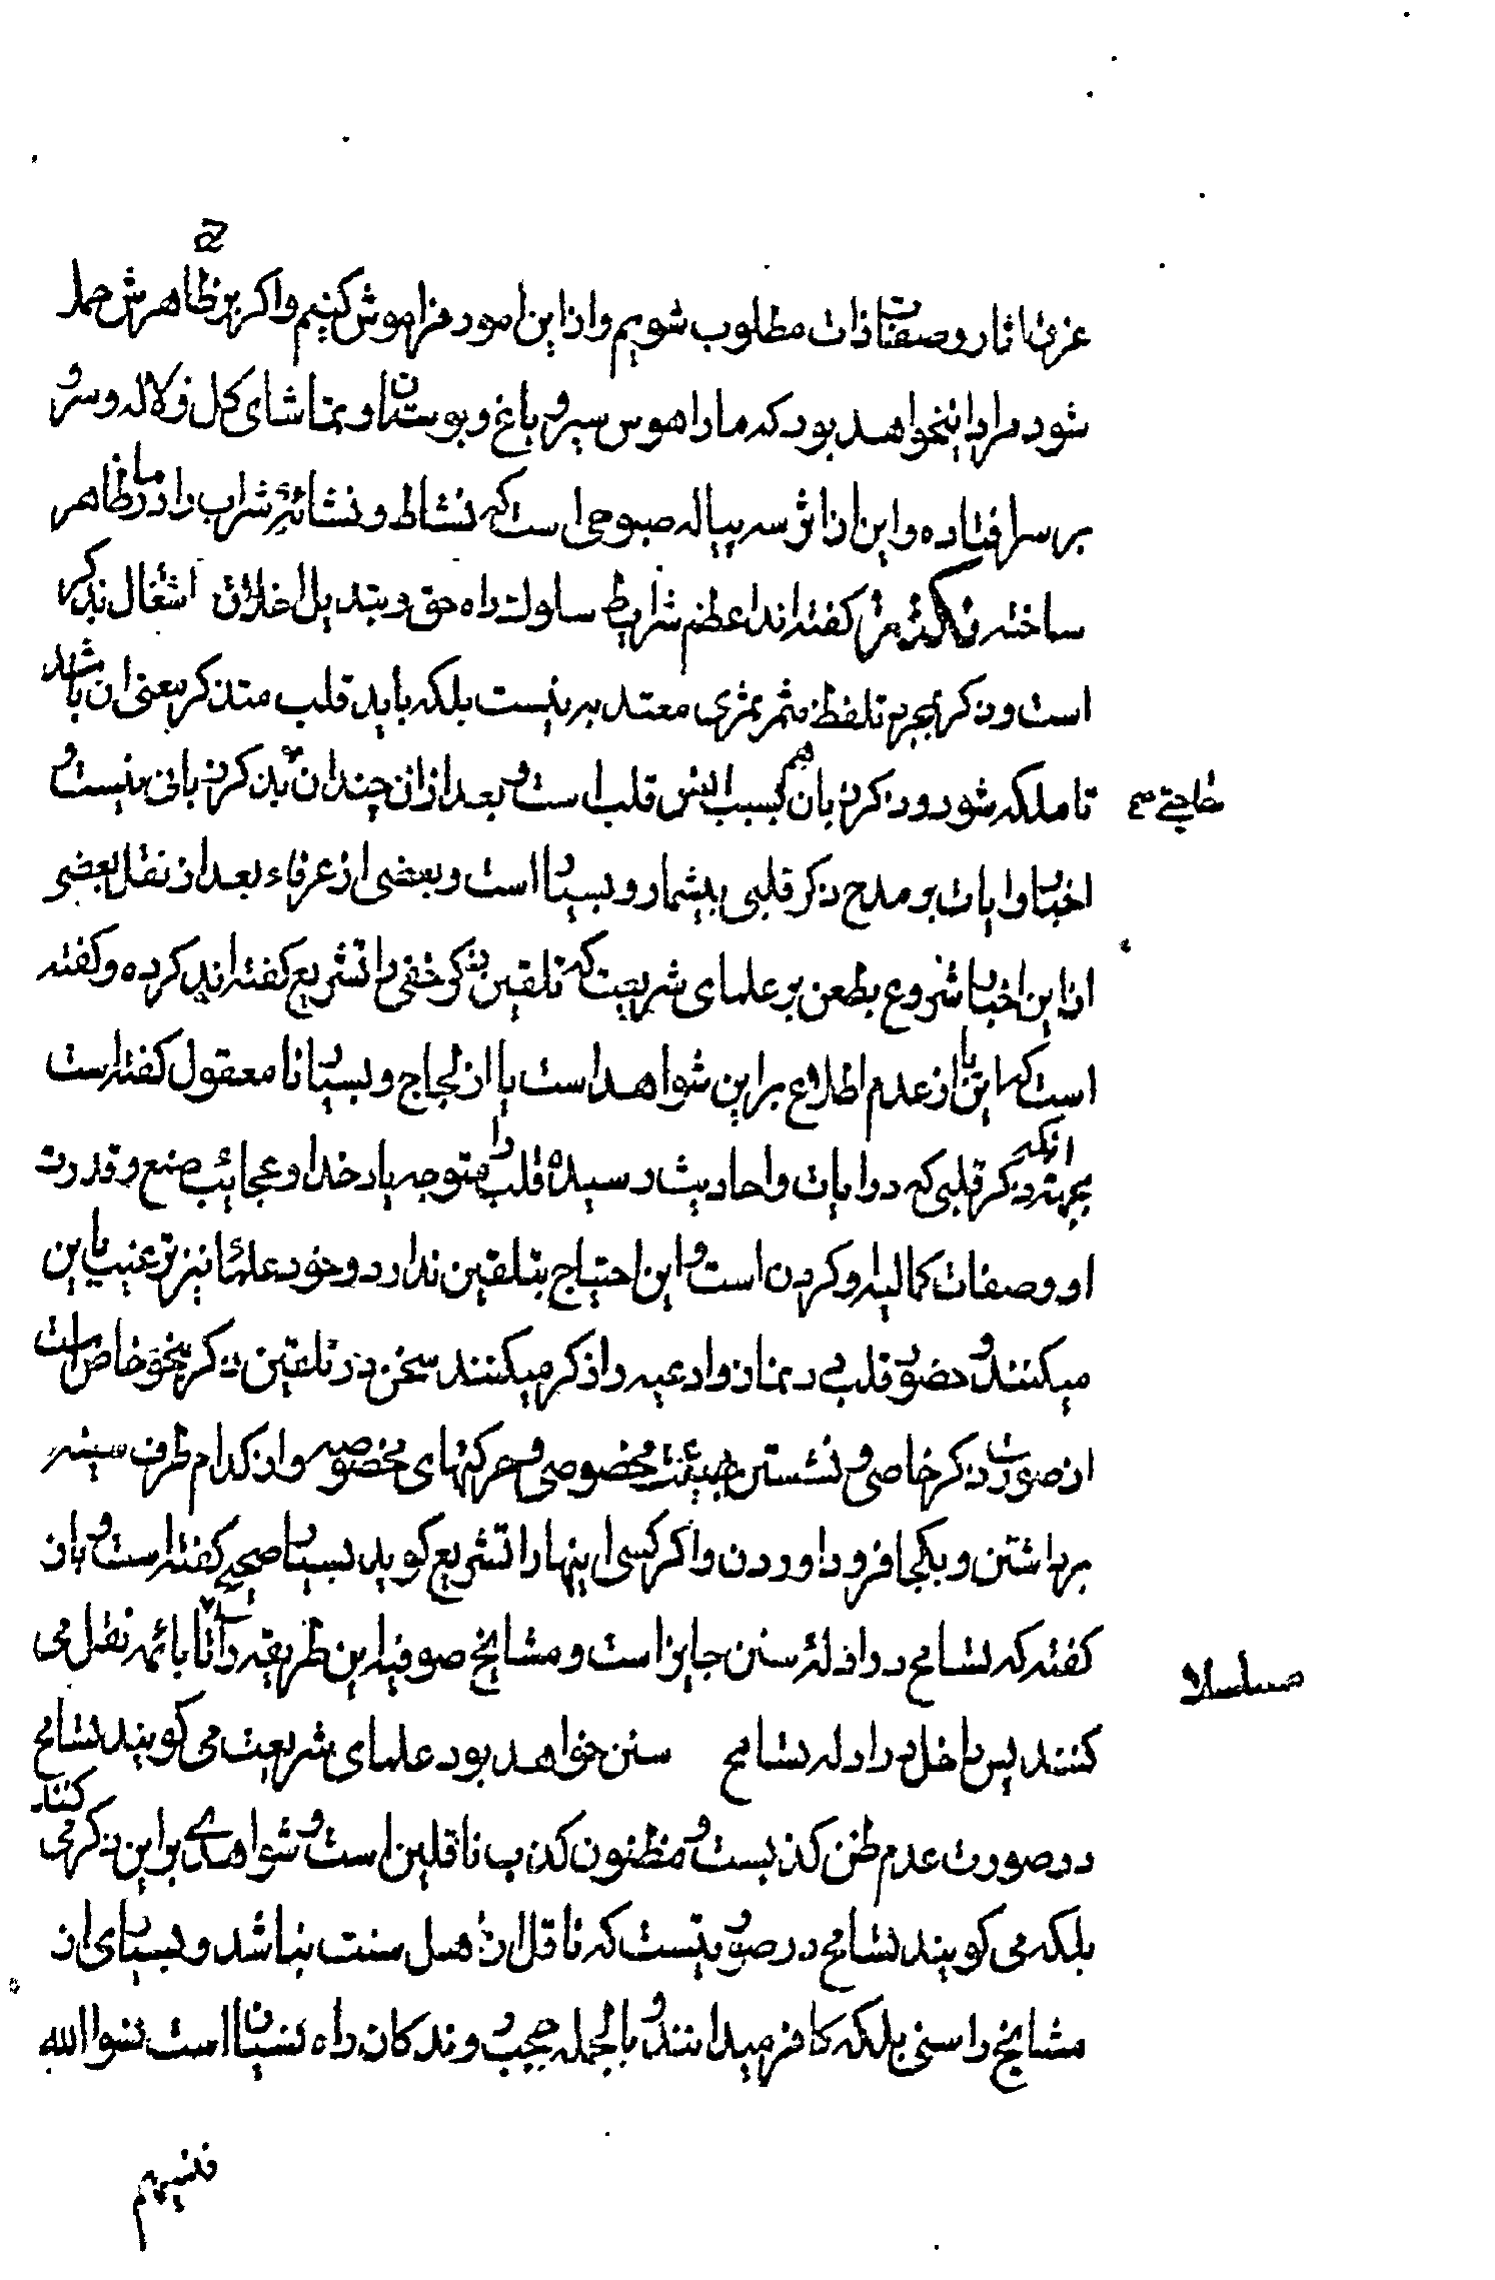 غرق اثار و صفات ذات مطلوب شویم و از این امور فراموش کنیم و اکر بر ظاهرش حمل
شود مراد این خواهد بود که ما را هوس سیر و باغ و بوستان و تماشای کل و لاله و سرو
بر سر افتاده و این از اثر سه پیاله صبوحی است که نشاط و نشائهٔ شراب را در ما ظاهر
ساخته کفته اند اعظم شرایط سلوک راه حق و تبدیل اخلاق اشتغال بذکر
است و ذکر بمجرد تلفظ مثمر ثمری معتد به نیست بلکه باید قلب متذکر معنی ان باشد
تا ملکه شود و ذکر زبان هم بسبب انس قلب است و بعد از ان چندان بذکر زبانی نیست و
حاجتی صح
اخبار و ایات بر مدح ذکر قلبی بیشمار و بسیار است و بعضی از عرفاء بعد از نقل بعضی
از این اخبار شروع بطعن بر علمای شریعت که تلقین ذکر خفی را تشریع کفته اند کرده و کفته
است که این یا از عدم اطلاع بر این شواهد است یا از لجاج و بسیار نا معقول کفته است
بجهة انکه ذکر قلبی که در ایات و احادیث رسیده قلب را متوجه یاد خدا و عجایب صنع و قدرت
او و صفات کمالیه او کردن است و این احتیاج بتلقین ندارد و خود علما نیز ترغیب باین
میکنند و حضور قلب در نماز و ادعیه را ذکر میکنند سخن در تلقین ذکر بنحو خاص است
از صورت ذکر خاصی و نشستن بهیئت مخصوصی و حرکتهای مخصوصه و از کدام طرف سینه
برداشتن و بکجا فرود اوردن و اکر کسی اینها را تشریع کوید بسیار صحیح کفته است و باز
کفته که تسامح در ادلهٔ سنن جایز است و مشایخ صوفیه این طریقه را تا بائمه نقل می
مسلسلا
کنند پس داخل در ادله تسامح سنن خواهد بود علمای شریعت می کویند تسامح
در صورت عدم ظن کذبست و مظنون کذب ناقلین است و شواهدی بر این ذکر می کنند
بلکه می کویند تسامح در صورتیست که ناقل از اهل سنت نباشد و بسیاری از
مشایخ را سنی بلکه کافر میدانند و بالجمله حجب روندکان راه نسیان است نسوا الله
فنسیهم